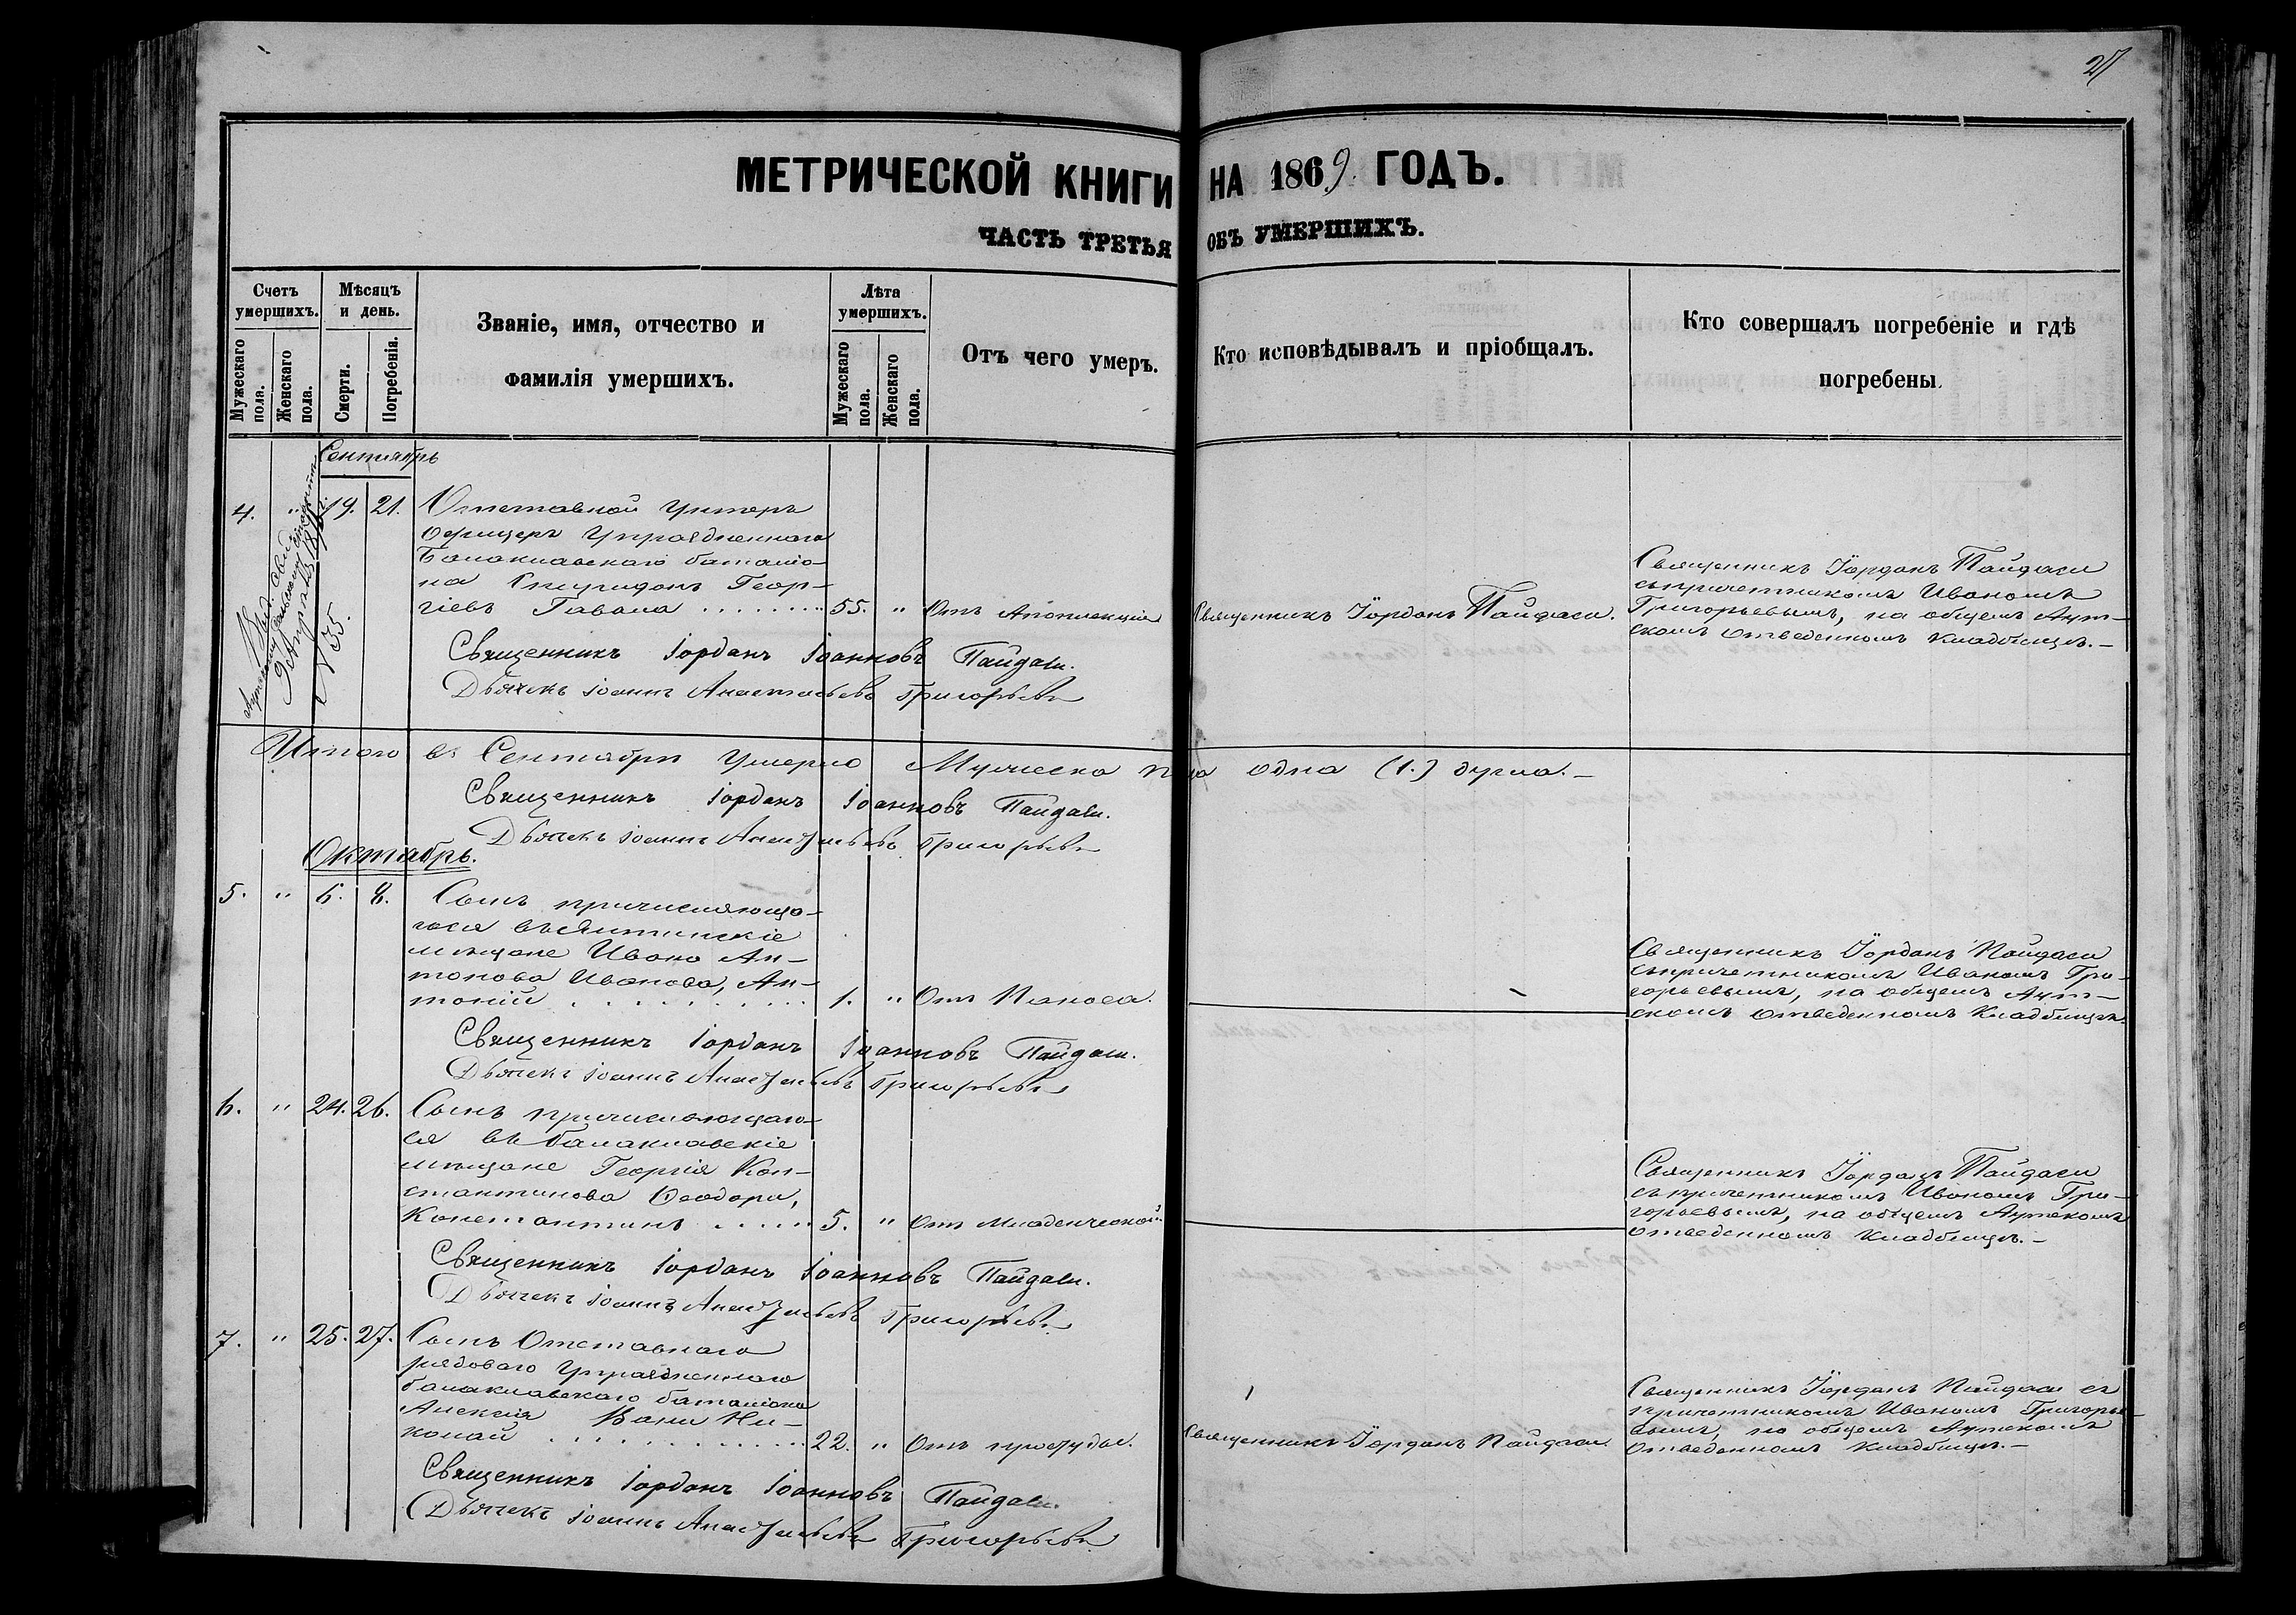 27
МЕТРИЧЕСКОЙ КНИГИ НА 1869 ГОДЪ.
ЧАСТЬ ТРЕТЬЯ ОБЪ УМЕРШИХЪ.
Счетъ умершихъ.
Мужескаго пола.
Женскаго пола.
Мѣсяцъ и день.
Смерти.
Погребенія.
Званіе, имя, отчество и
фамилія умершихъ.
Лѣта умершихъ.
Мужескаго пола.
Женскаго пола.
Отъ чего умеръ.
Кто исповѣдывалъ и пріобщалъ.
Кто совершалъ погребеніе и гдѣ
погребены.
Сентябрь
4. " 19. 21. Отставной Унтеръ
офицеръ Упраздненнаго
Балаклавскаго баталіо-
на Спиридонъ Геор-
гіевъ Гавала ........ 55. " Отъ Апоплекціи
Священникъ Іорданъ Пайдаси.
Священникъ Іорданъ Пайдаси
съ причетникомъ Иваномъ
Григорьевымъ, на общемъ Аут-
скомъ отведенномъ кладбищѣ.-
№ 35.
Священникъ Іорданъ Іоанновъ Пайдаси.
Дьячекъ Іоаннъ Анастасьевъ Григорьевъ
Итого въ Сентябрѣ Умерло Мужеска пола одна (1.) душа.-
Священникъ Іорданъ Іоанновъ Пайдаси.
Дьячекъ Іоаннъ Анастасьевъ Григорьевъ
Октябрь.
5. " 6. 8. Сынъ причисляюща-
гося въ Ялтинскіе
мѣщане Ивана Ан-
тонова Иванова, Ан-
тоній .......... 1. " Отъ Поноса.
Священникъ Іорданъ Пайдаси
съ причетникомъ Иваномъ Гри-
горьевымъ, на общемъ Аут-
скомъ отведенномъ Кладбищѣ.
Священникъ Іорданъ Іоанновъ Пайдаси.
Дьячекъ Іоаннъ Анастасьевъ Григорьевъ
6. " 24. 26. Сынъ причисляющаго-
ся въ балаклавскіе
мѣщане Георгія Кон-
стантинова Ѳеодори,
Константинъ ..... 5. " Отъ Младенческой.
Священникъ Іорданъ Пайдаси
съ причетникомъ Иваномъ Гри-
горьевымъ, на общемъ Аутскомъ
отведенномъ Кладбищѣ.-
Священникъ Іорданъ Іоанновъ Пайдаси.
Дьячекъ Іоаннъ Анастасьевъ Григорьевъ
7. " 25. 27. Сынъ Отставнаго
рядоваго Упраздненнаго
балаклавскаго баталіона
Алексія Ни-
колай ............ 22. " Отъ простуды.
Священникъ Іорданъ Пайдаси.
Священникъ Іорданъ Пайдаси съ
причетникомъ Иваномъ Григорье-
вымъ, на общемъ Аутскомъ
отведенномъ кладбищѣ.-
Священникъ Іорданъ Іоанновъ Пайдаси.
Дьячекъ Іоаннъ Анастасьевъ Григорьевъ